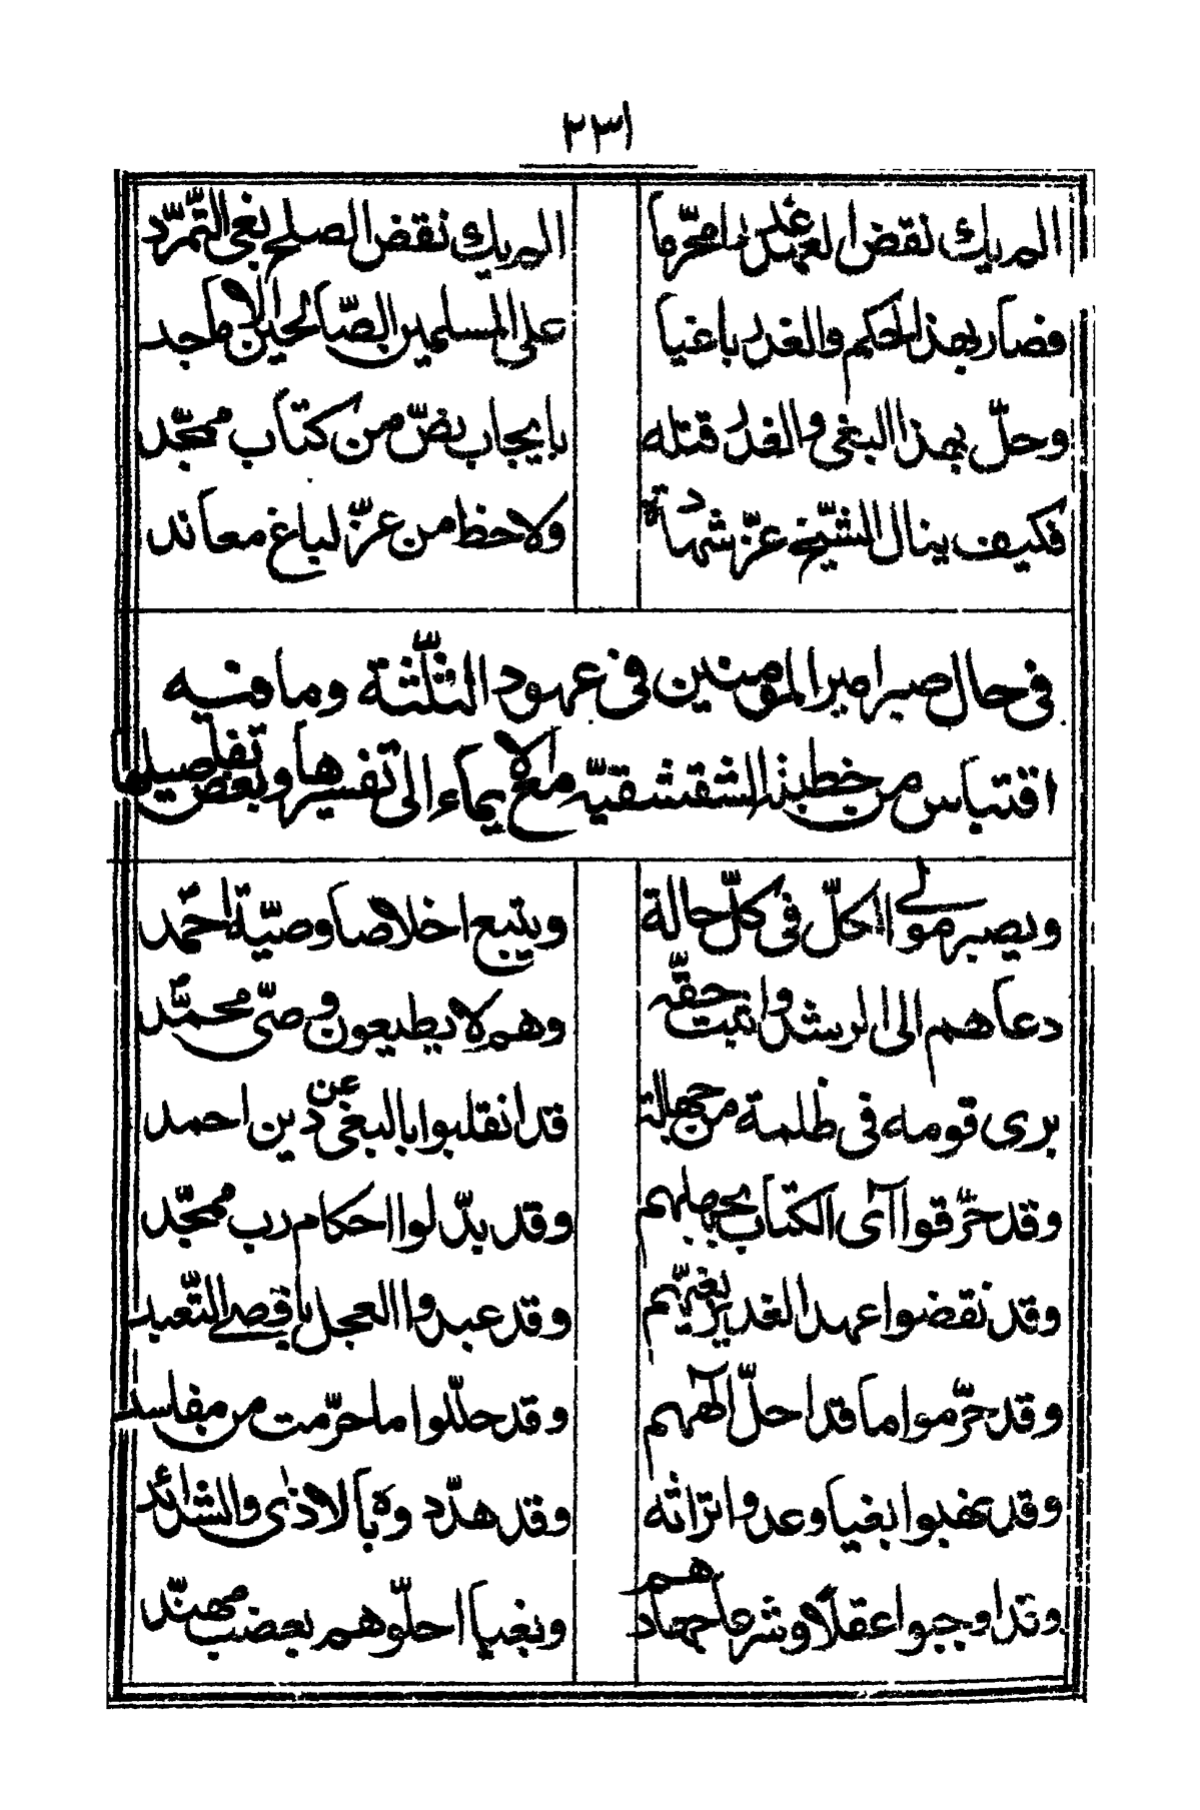 ٢٣١
الم يك نقض العهد غدرا محرّما الم يك نقض الصلح بغى التّمرّد
فصار بهذا الحكم والغدر باغيا على المسلمين الصّالحين الاماجد
وحلّ بهذا البغى والغدر قتله بايجاب نصّ من كتاب ممجّد
فكيف ينال الشّيخ عزّ شهادة ولا حظ من عزّ لباغ معاند
فى حال صبر امير المؤمنين فى عهود الثّلثة وما فيه
اقتباس من خطبته الشقشقيّة مع الايماء الى تفسيرها وبعض تفاصيلها
ويصبر مولى الكلّ فى كلّ حالة ويتبع اخلاصا وصيّة احمد
دعاهم الى الرشد واثبت حقّه وهم لا يطيعون وصّى محمّد
يرى قومه فى ظلمة من جهالة قد انقلبوا بالبغى عن دين احمد
وقد حرّقوا آى الكتاب بجهلهم وقد بدّلوا احكام رب ممجّد
وقد نقضوا عهد الغدير بغيّهم وقد عبدوا العجل باقصى التّعبد
وقد حرّموا ما قد احلّ آلههم وقد حللوا ما حرّمت من مفاسد
وقد نهبوا بغيا وعدوا تراثه وقد هدّدوه بالاذى والشدائد
وقد اوجبوا عقلا وشرعا جهادهم وبغيا احلّوهم بعضب مهنّد